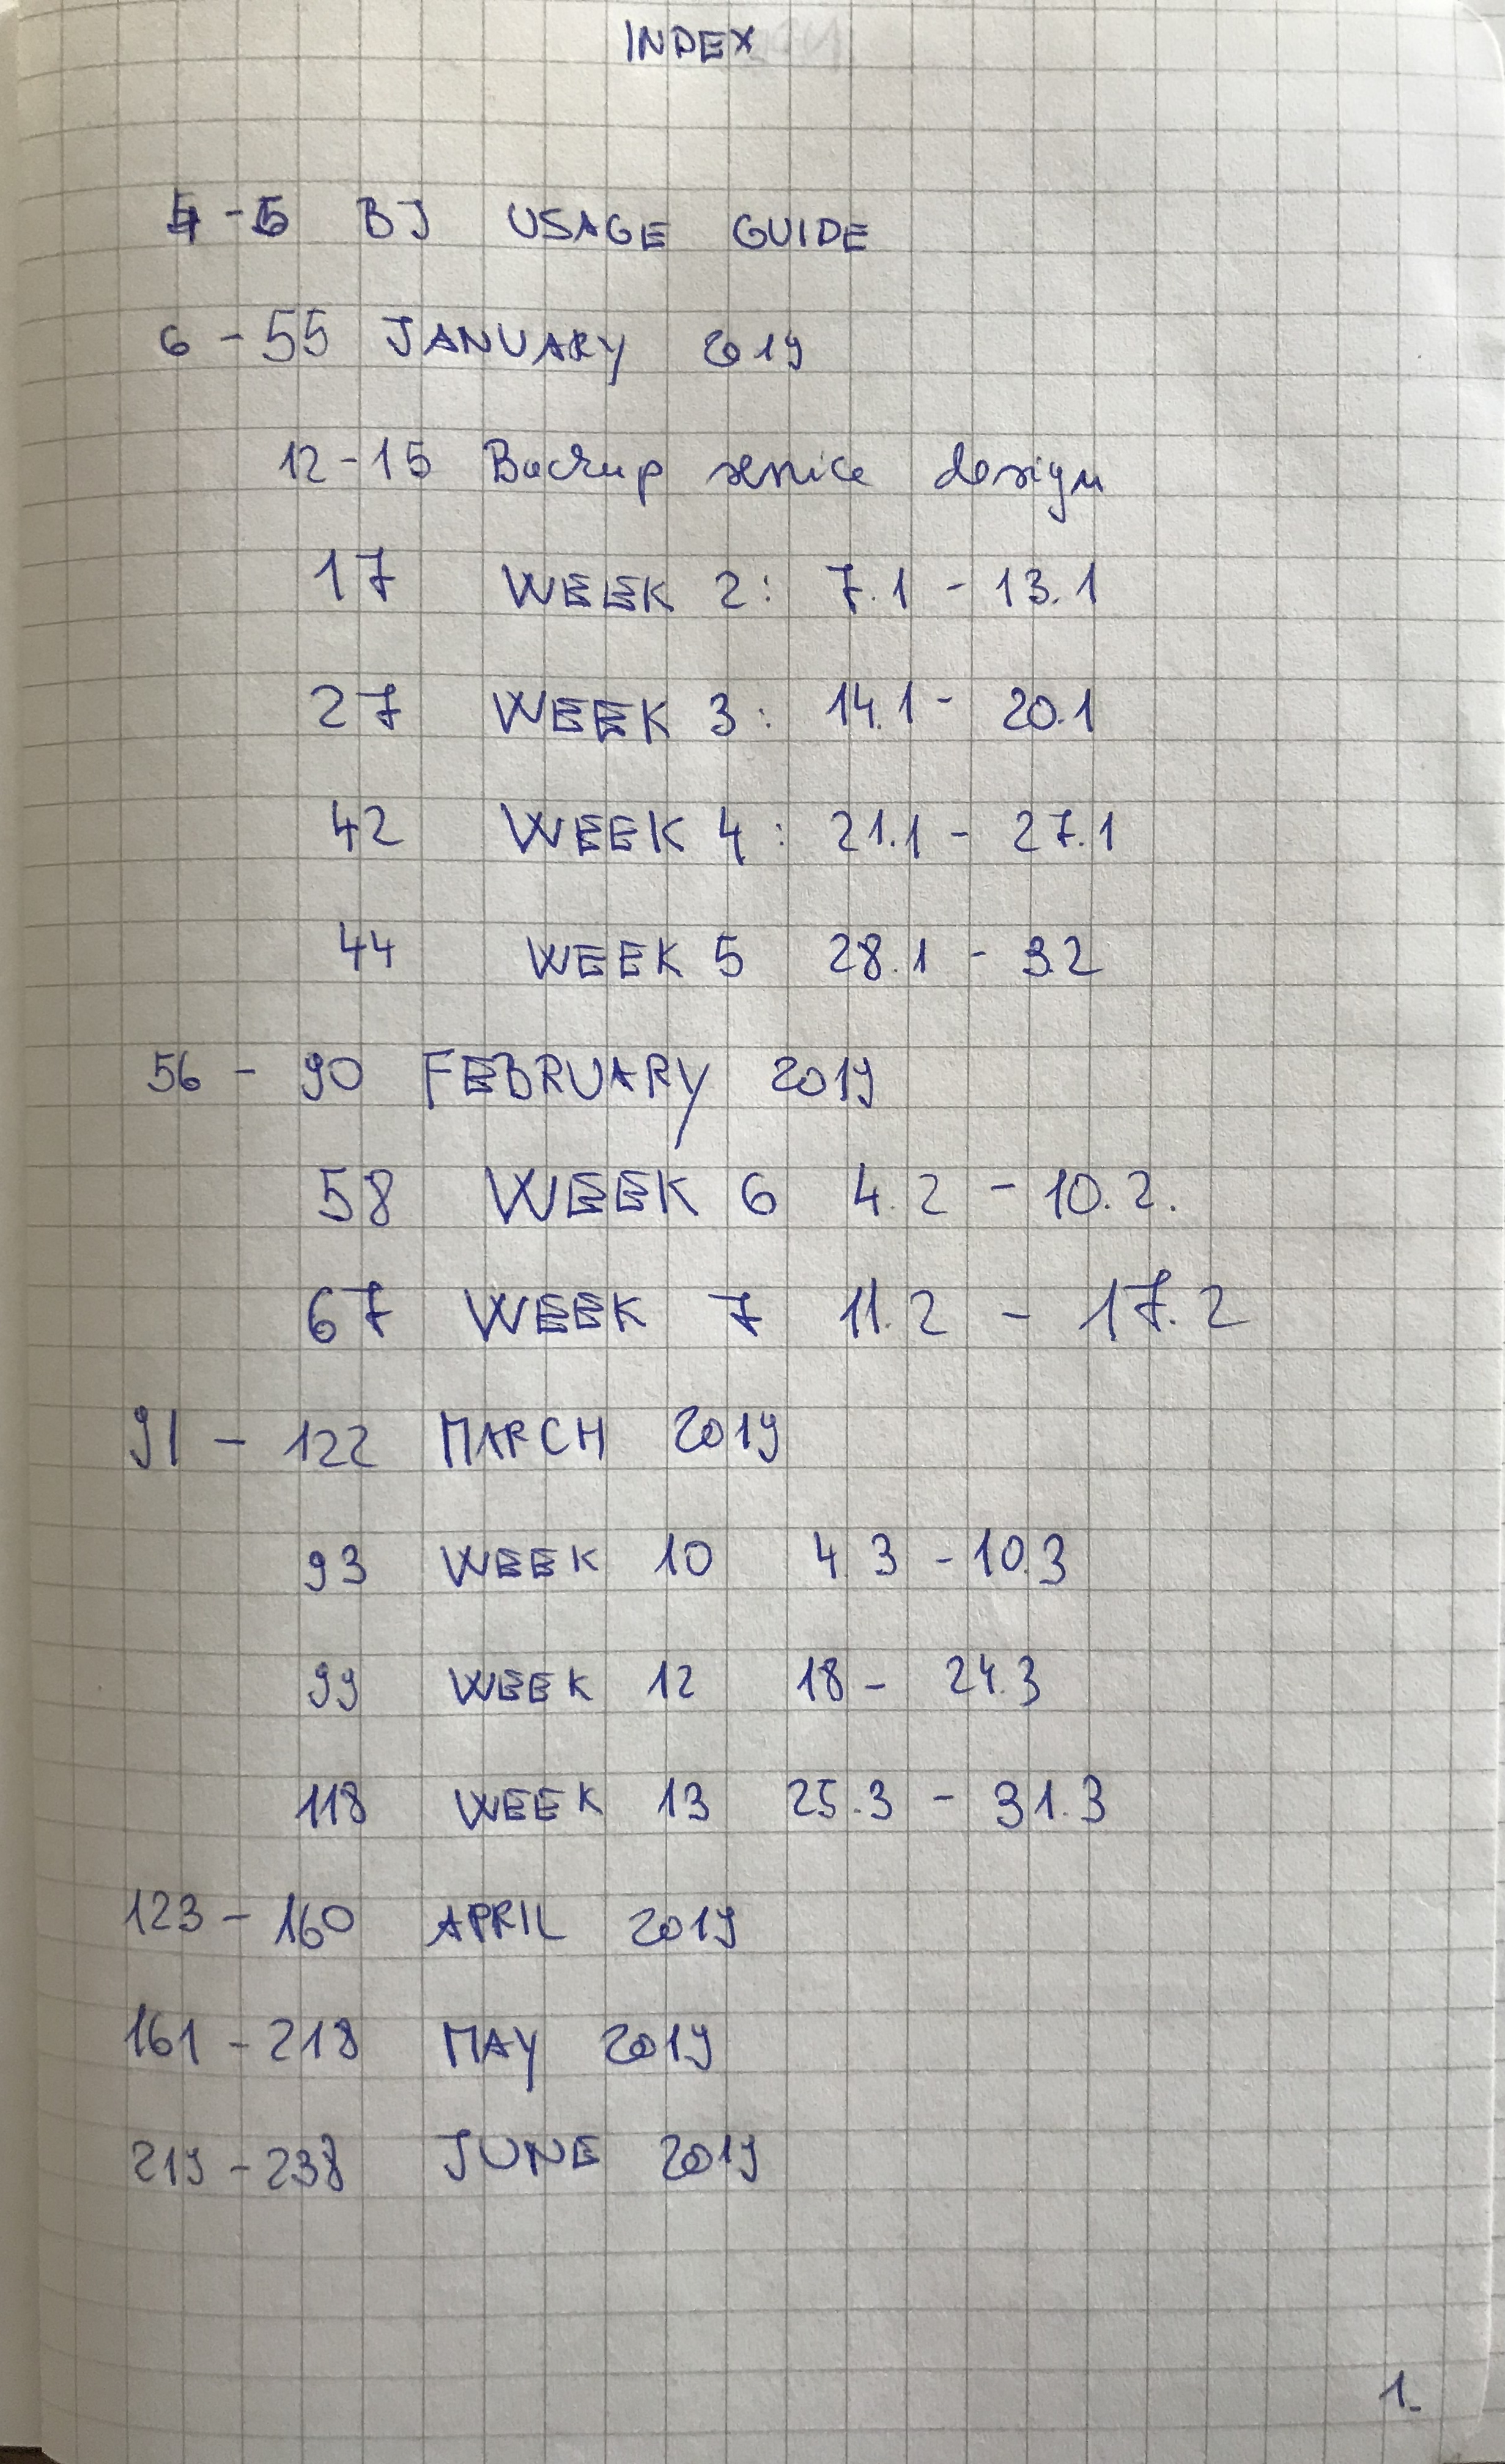 INDEX
4-5 BJ USAGE GUIDE
6-55 JANUARY 2019
12-15 Backup service design
17 WEEK 2: 7.1 - 13.1
27 WEEK 3: 14.1 - 20.1
42 WEEK 4: 21.1 - 27.1
44 WEEK 5 28.1 - 3.2
56 - 90 FEBRUARY 2019
58 WEEK 6 4.2 - 10.2.
67 WEEK 7 11.2 - 17.2
91 - 122 MARCH 2019
93 WEEK 10 4.3 - 10.3
99 WEEK 12 18 - 24.3
118 WEEK 13 25.3 - 31.3
123 - 160 APRIL 2019
161 - 218 MAY 2019
219 - 238 JUNE 2019
1.